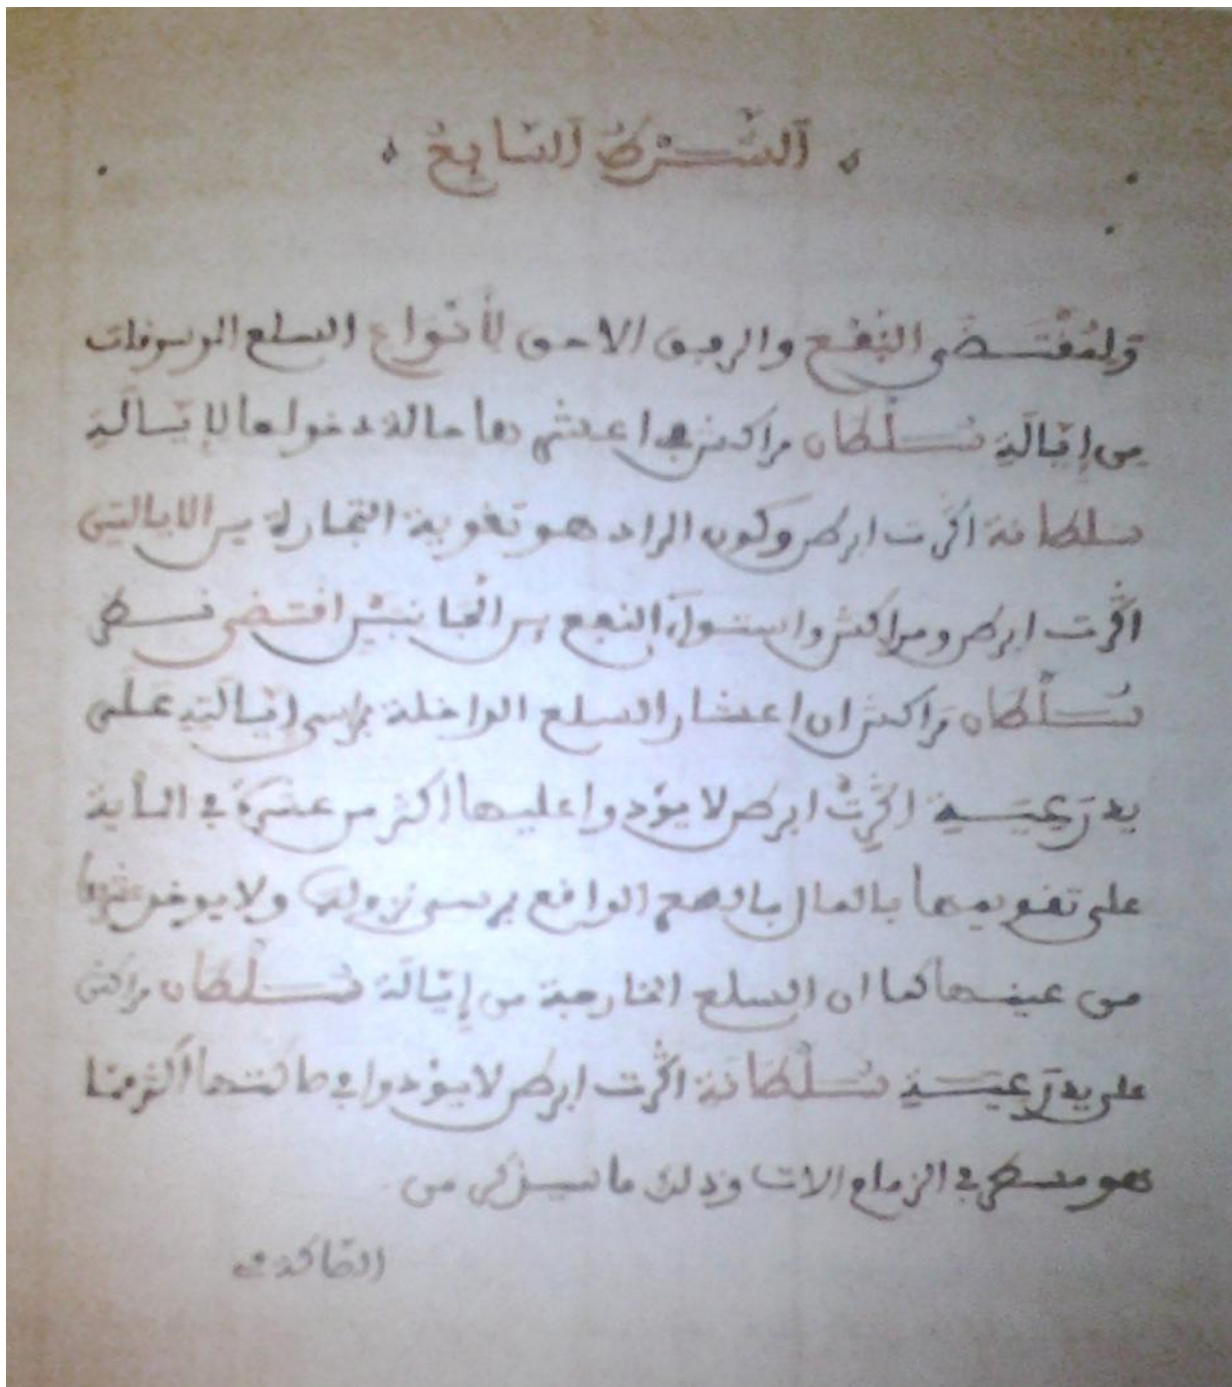 الشرط السابع
ولمقتضى النفع والرفق الاحق لأنواع السلع الموسوفات
من إيالة سلطان مراكش في اعشارها حالة دخولها لإيالة
سلطانة اڭرت ابرطن وكون المراد هو تقوية التجارة بين الايالتين
اڭرت ابرطن ومراكش واستواء النفع بين الجانبين اقتضى نظر
سلطان مراكش ان اعشار السلع الداخلة بمراسي إيالته على
يد رعية اڭرت ابرطن لا يؤدوا عليها أكثر من عشرة في الماية
على تقويمها بالمال بالصرف الواقع بمرسى نزولها ولا يوخذ عشرها
من عينها كما ان السلع الخارجة من إيالة سلطان مراكش
على يد رعية سلطانة اڭرت ابرطن لا يؤدوا في صاكتها أكثر مما
هو مسطر في الزمام الات وذلك ما سيذكر من
الصاكة